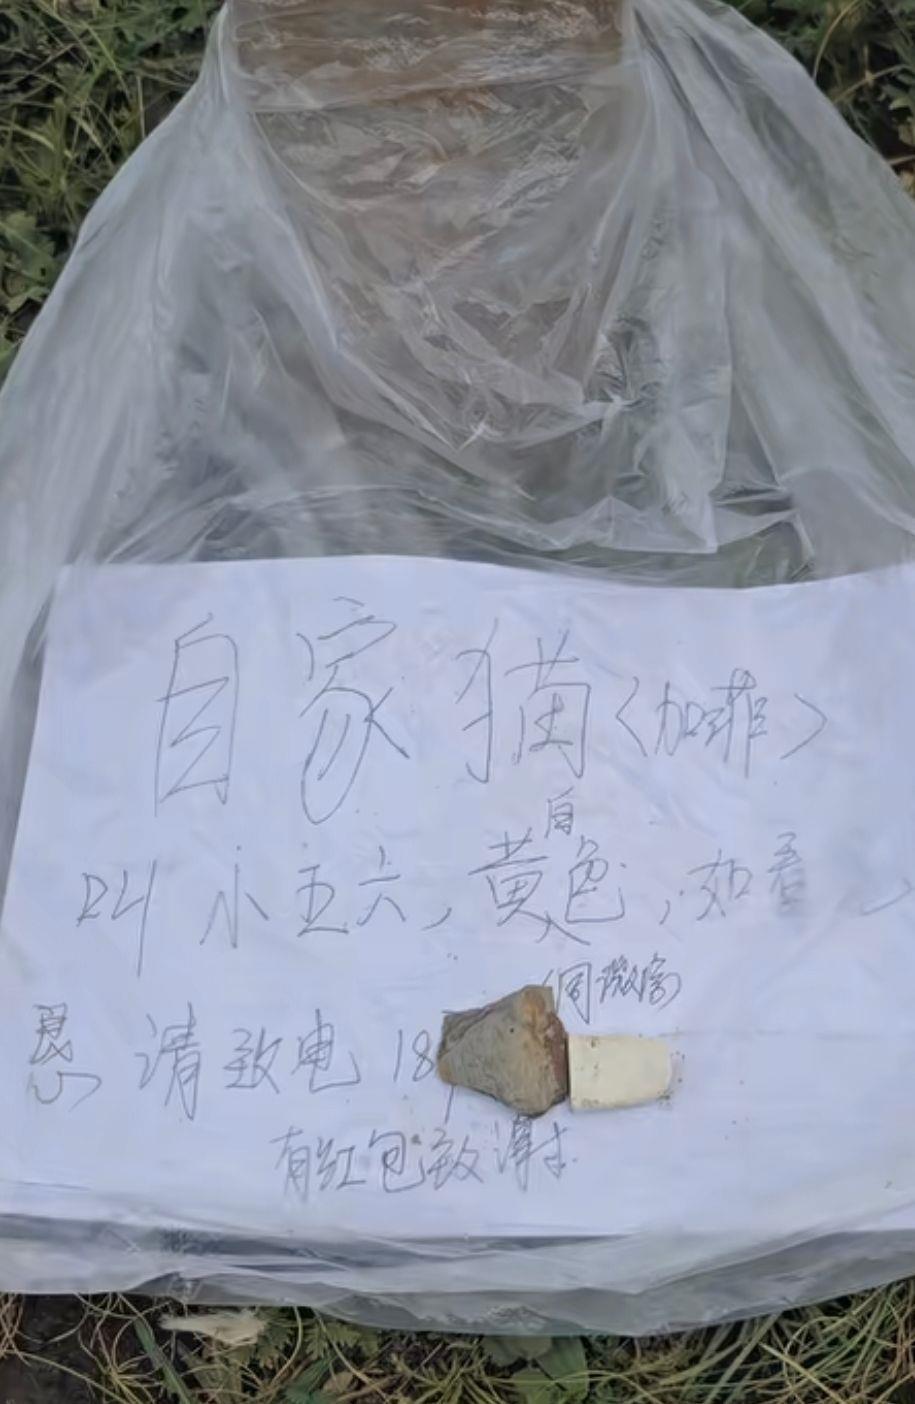 自家猫〈加菲〉
叫小五六，黄白色，如看
同微信
恳请致电 18
有红包致谢!